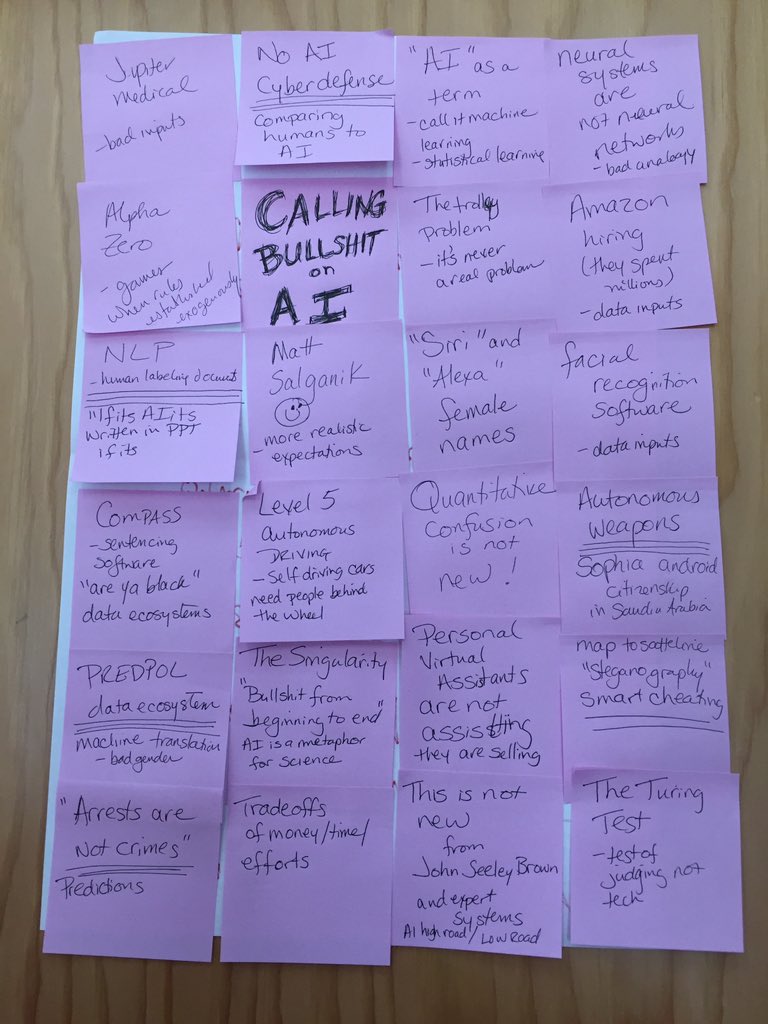 Jupiter
medical
- bad inputs
No AI
Cyberdefense
comparing
humans to
AI
"AI" as a
term
- call it machine
learning
- statistical learning
neural
systems
are
not neural
networks
- bad analogy
Alpha
Zero
- games
when rules
established
exogenously
CALLING
BULLSHIT
on
AI
The trolly
problem
- it's never
a real problem
Amazon
hiring
(they spent
millions)
- data inputs
NLP
- human labeling documents
"If its AI its
written in PPT
if its
Matt
Salganik
- more realistic
expectations
"Siri" and
"Alexa"
female
names
facial
recognition
software
- data inputs
COMPASS
- sentencing
software
"are ya black"
data ecosystems
Level 5
autonomous
DRIVING
- Self driving cars
need people behind
the wheel
Quantitative
confusion
is not
new!
Autonomous
weapons
Sophia android
citizenship
in Saudia Arabia
PREDPOL
data ecosystem
machine translation
- bad gender
The Singularity
"Bullshit from
beginning to end"
AI is a metaphor
for science
Personal
Virtual
Assistants
are not
assisting
they are selling
map to
"Steganography"
smart cheating
"Arrests are
Not crimes"
Predictions
Tradeoffs
of money/time/
efforts
This is not
new
from
John Seeley Brown
and expert
systems
AI high road/LOW ROAD
The Turing
Test
- test of
judging not
tech